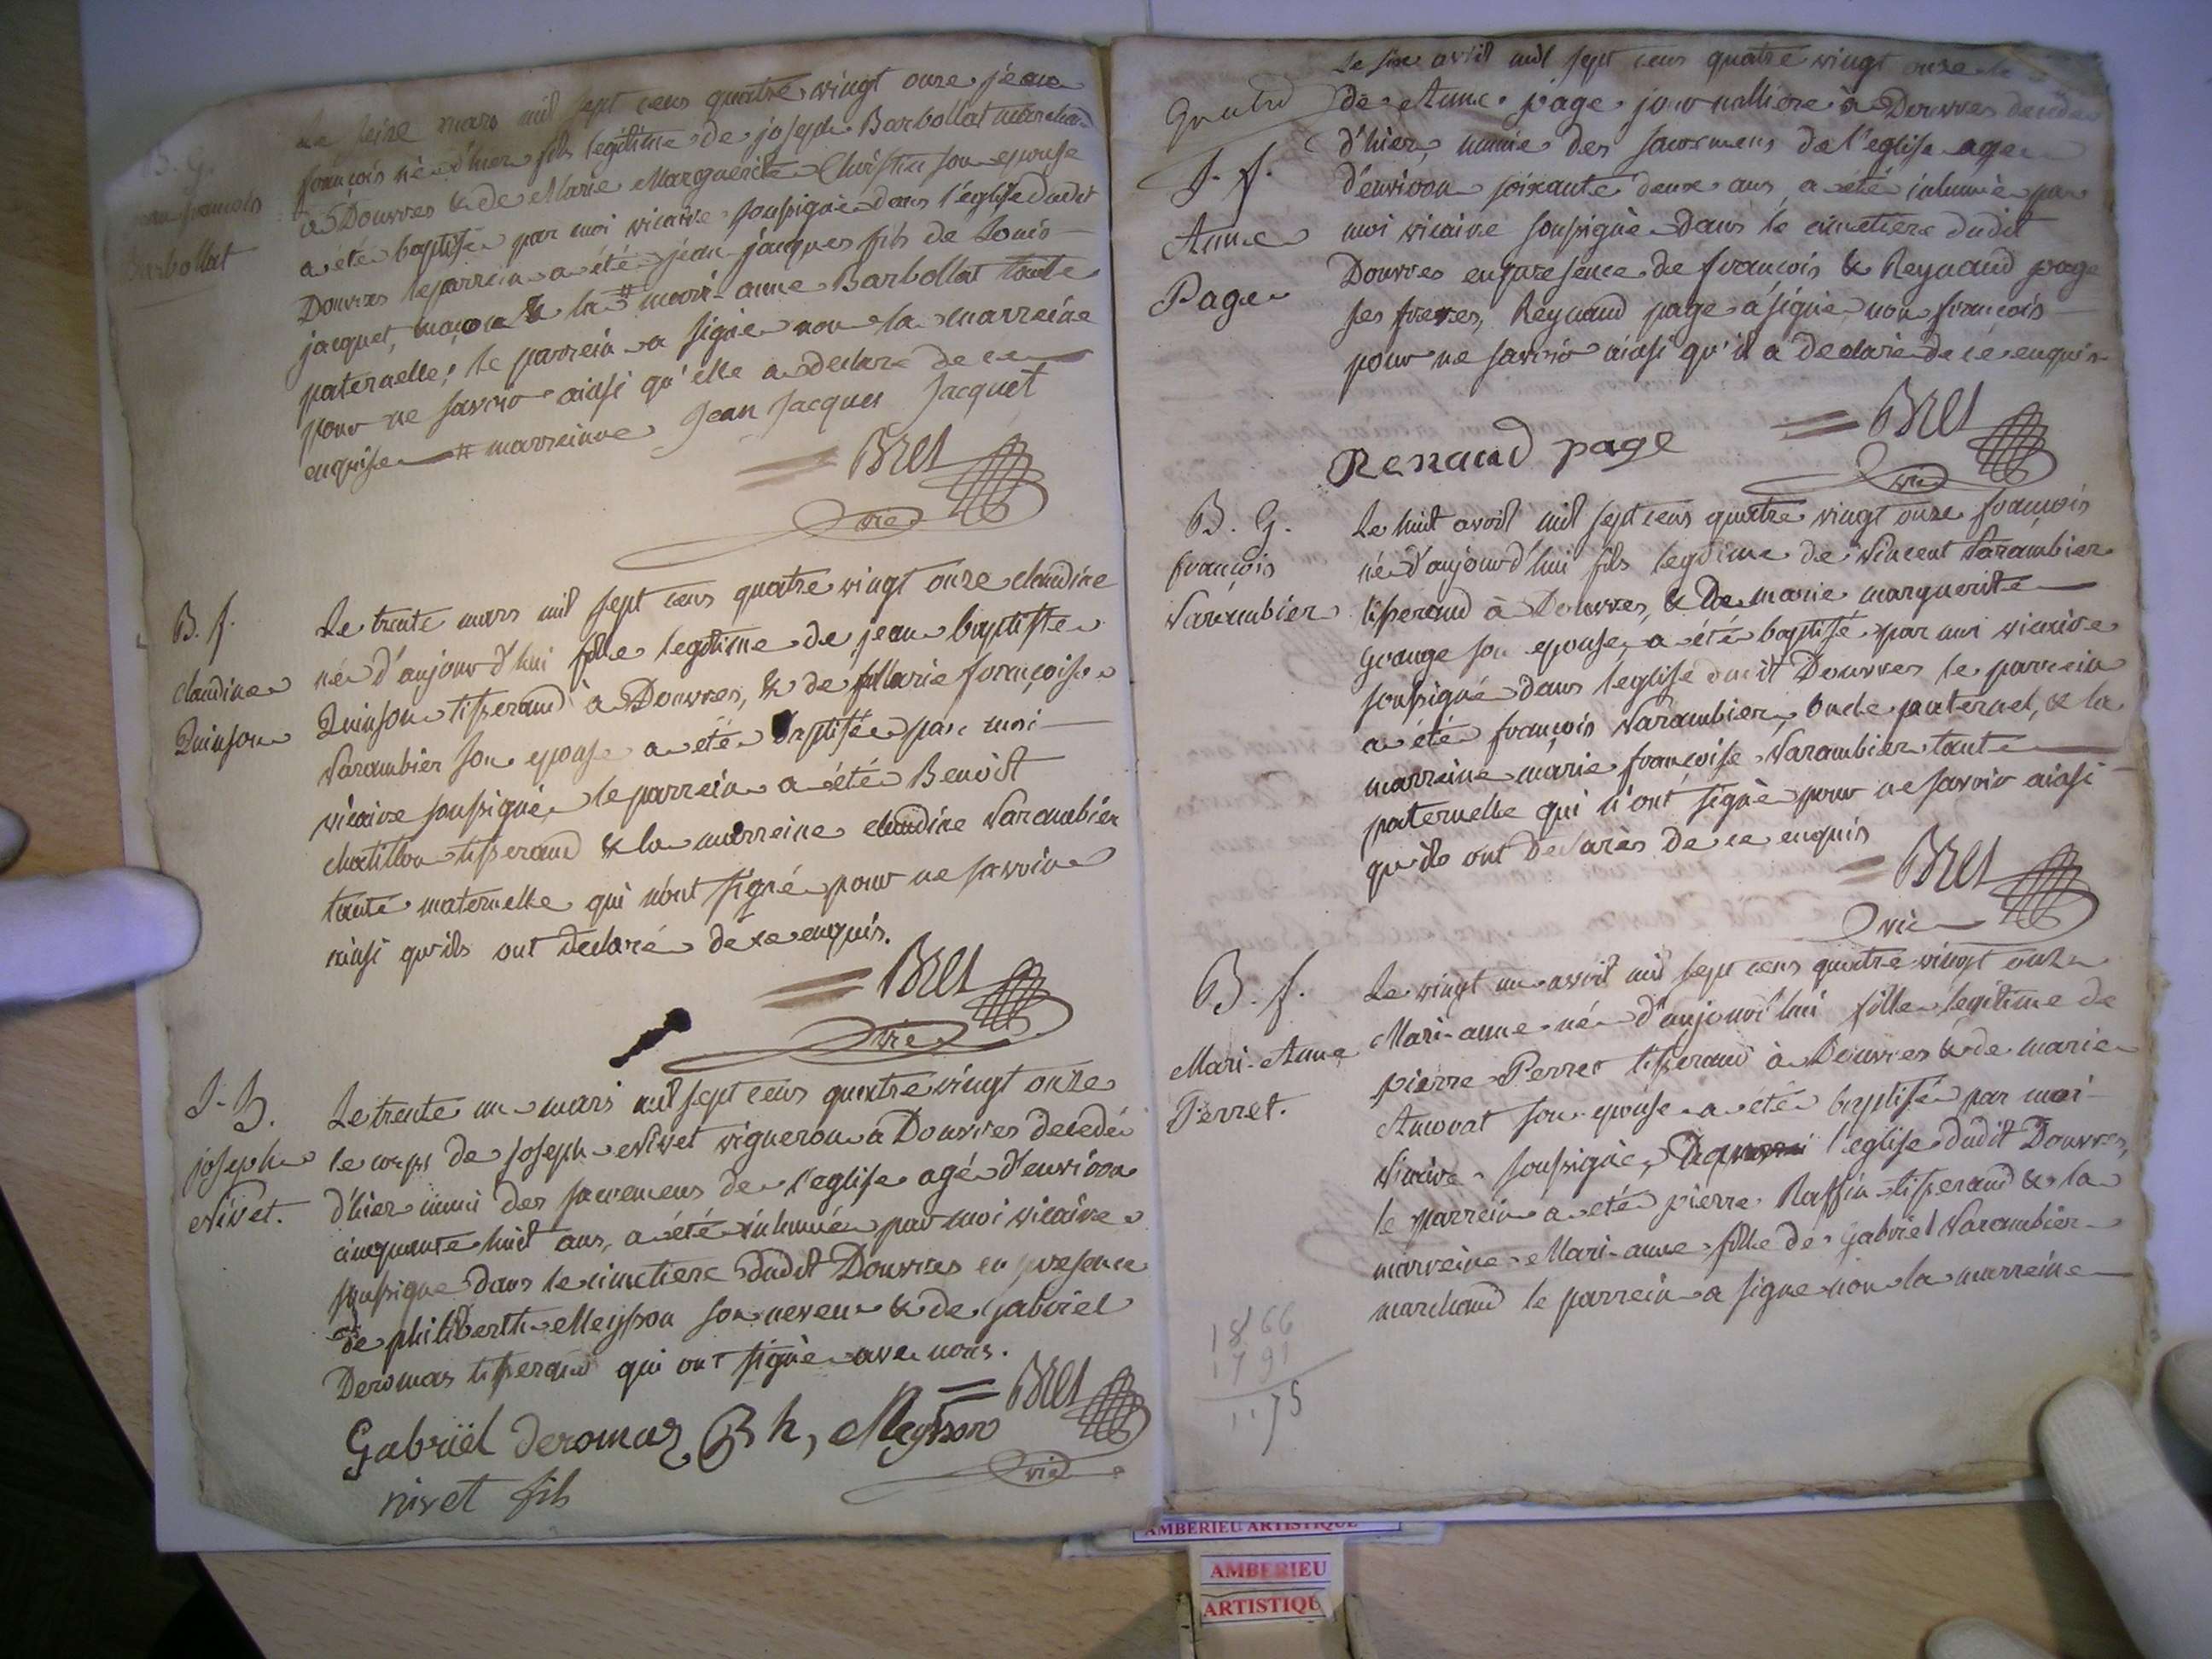 B. G.
jean francois
Barbollat
Le seize mars mil sept cens quatre vingt onze jean
francois né d'hier fils legitime de joseph Barbollat marchand
à Douvres & de Marie Marguerite Christin son epouse
a été baptisé par moi vicaire soussigné dans l'eglise dudit
Douvres le parrein a été jean jacques fils de Louis
jacquet, maçon & la # mari-anne Barbollat tante
paternelle; le parrein a signé non la marreine
pour ne savoir ainsi qu'elle a declaré de ce
enquise # marreinne Jean Jacques Jacquet
Bret
vic
B. f.
claudine
Quinson
Le trente mars mil sept cens quatre vingt onze claudine
née d'aujourd'hui fille legitime de jean baptiste
Quinson tisserand à Douvres, & de Marie françoise
Varambier son epouse a été baptisée par moi
vicaire soussigné, le parrein a été Benoist
chatillon tisserand & la marreine claudine Varambier
tante maternelle qui n'ont signé pour ne savoir
ainsi qu'ils ont déclaré de ce enquis.
Bret
vic
S. G.
joseph
Nivet.
Le trente un mars mil sept cens quatre vingt onze
le corps de joseph Nivet vigneron à Douvres decedé
d'hier muni des sacremens de l'eglise agé d'environ
cinquante huit ans, a été inhumé par moi vicaire
soussigné dans le cimetiere dudit Douvres en presence
de philiberth Meysson son neveu & de gabriel
Deromas tisserand qui ont signé avec nous.
Bret
Gabriël deromas Ph, Meysson
vic
nivet fils
S. f.
Anne
Page
Le six avril mil sept cens quatre vingt onze le
de Anne page journalliere à Douvres decedée
d'hier, munie des sacremens de l'eglise agée
d'environ soixante deux ans, a été inhumée par
moi vicaire soussigné dans le cimetiere dudit
Douvres en presence de francois & Reynaud page
ses freres, Reynaud page a signé non françois
pour ne savoir ainsi qu'il a declaré de ce enquis
Bret
Renaud page
vic
B. G.
françois
Varambier
Le huit avril mil sept cens quatre vingt onze françois
né d'aujourd'hui fils legitime de Vincent Varambier
tisserand à Douvres, & De marie marguerite
Grange son epouse, a été baptisé par moi vicaire
soussigné dans l'eglise dudit Douvres le parrein
a été françois Varambier, oncle paternel, & la
marreine marie françoise Varambier tante
paternelle qui n'ont signé pour ne savoir ainsi
qu'ils ont declarés de ce enquis
Bret
vic
B. f.
Mari-Anne
Perret.
Le vingt un avril mil sept cens quatre vingt onze
Mari-anne née d'aujourd'hui fille legitime de
pierre Perret tisserand à Douvres & de marie
son epouse a été baptisée par moi
Vicaire soussigné, l'eglise dudit Douvres,
le parrein a été pierre Raffin tisserand & la
marreine Mari-anne fille de Gabriel Varambier
marchand le parrein a signé non la marreine
1866
1791
75
AMBERIEU ARTISTIQUE
AMBERIEU
ARTISTIQUE